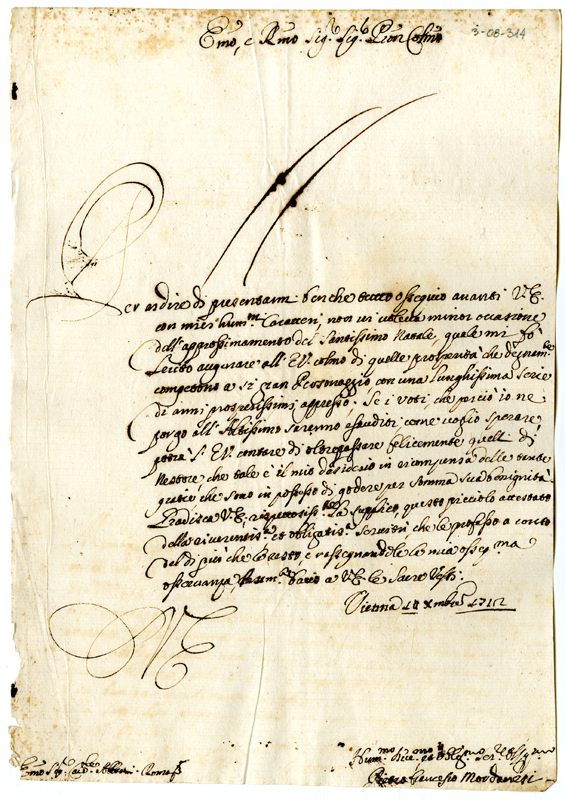 Emo, e Rmo Sigr Sigr Pron Colmo
3-08-314
Per ardire di presentarmi benche tutto ossequio avanti V. E.
con miei hummi Caratteri, non vi voleva minor occasione
dell'approssimamento del Santissimo Natale, quale mi fà
lecito augurare all'E.V. colma di quelle prosperità che
competono a si gran Personaggio con una lunghissima serie
di anni prosperissimi appresso. Se i voti, che perciò io ne
porgo all'Altissimo seranno esauditi come voglio sperare,
potrà l'E.V. contare di oltrepassare felicemente quelli di
Nestore che tale è il mio desiderio in ricompensa delle tante
grazie che sono in possesso di godere per somma sua benignità
Gradisca V.E. la supplico, questo piccolo attestato
della riverentissa et obligatissa servitù che le professo a conto
del di più che le resto, e rassegnandole la mia osseqma
osservanza, bacio a V.E. le Sacre Vesti.
Vienna 10 Xmbre 1712
Emo Sigr Card. Albani Roma
Humo
Pietro Francesco